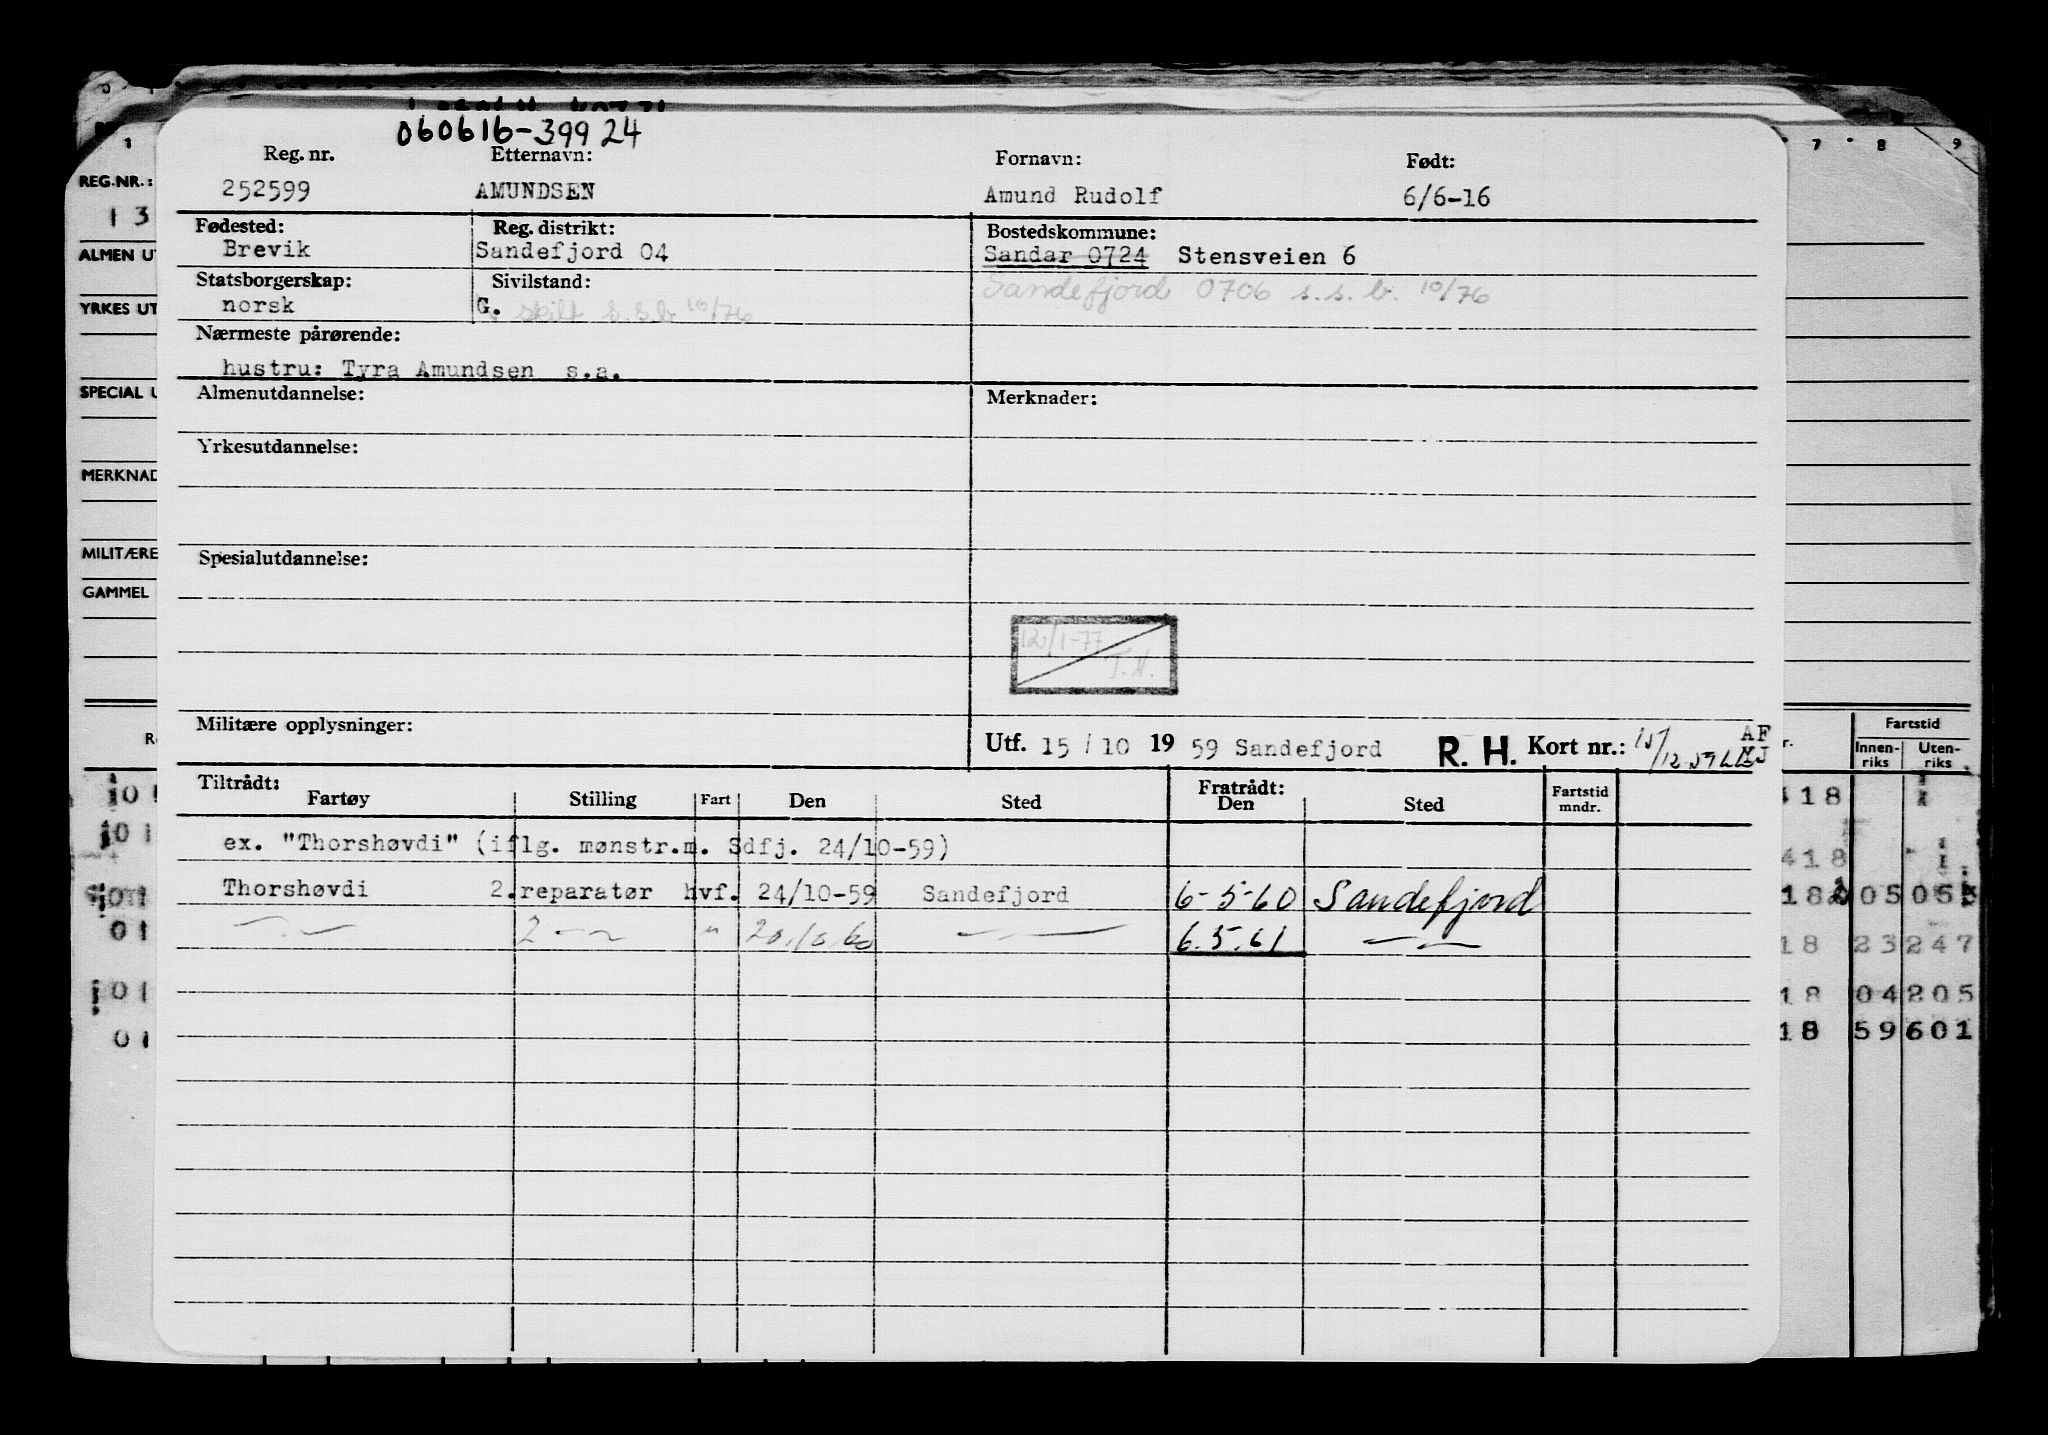 060616-39924
Reg. nr. Etternavn: Fornavn: Født:
252599 AMUNDSEN Amund Rudolf 6/6-16
Fødested: Reg. distrikt: Bostedskommune:
Brevik Sandefjord 04 Sandar 0724 Stensveien 6
Statsborgerskap: Sivilstand: Sandefjord 0706 s.s.b. 10/76
norsk G. skilt s.s.b 10/76
Nærmeste pårørende:
hustru: Tyra Amundsen s.a.
Almenutdannelse: Merknader:
Yrkesutdannelse:
Spesialutdannelse:
12/1-77
T.H.
Militære opplysninger:
Utf. 15 / 10 19 59 Sandefjord R. H. Kort nr.: AF
Tiltrådt: Fratrådt:
Fartøy Stilling Fart Den Sted Den Sted Fartstid mndr.
ex. "Thorshøvdi" (iflg. mønstr.m. Sdfj. 24/10-59)
Thorshøvdi 2.reparatør hvf. 24/10-59 Sandefjord 6-5-60 Sandefjord
— " — 2 — " — " 20/10.60 — " — 6.5.61 — " —
1
REG.NR.:
13
ALMEN UT
YRKES UT
SPECIAL U
MERKNAD
MILITÆRE
GAMMEL
01
01
01
01
7 8 9
Fartstid
Innen-riks Uten-riks
418
418
18 05 05
18 23 247
18 04 205
18 59 601